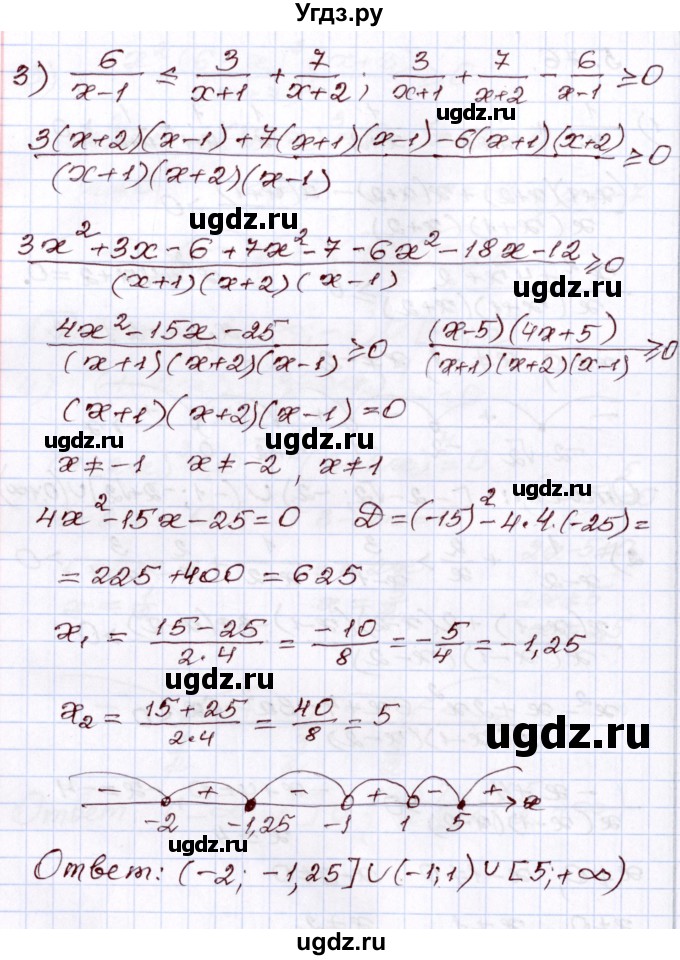 Угдз.ру
3) 6/(x-1) ≤ 3/(x+1) + 7/(x+2); 3/(x+1) + 7/(x+2) - 6/(x-1) ≥ 0
ugdz.ru
(3(x+2)(x-1) + 7(x+1)(x-1) - 6(x+1)(x+2))/((x+1)(x+2)(x-1)) ≥ 0
ugdz.ru
(3x² + 3x - 6 + 7x² - 7 - 6x² - 18x - 12)/((x+1)(x+2)(x-1)) ≥ 0
ugdz.ru
(4x² - 15x - 25)/((x+1)(x+2)(x-1)) ≥ 0 ((x-5)(4x+5))/((x+1)(x+2)(x-1)) ≥ 0
(x+1)(x+2)(x-1) = 0
ugdz.ru ugdz.ru
x ≠ -1 x ≠ -2, x ≠ 1
ugdz.ru
4x² - 15x - 25 = 0 D = (-15)² - 4·4·(-25) =
= 225 + 400 = 625
ugdz.ru
x₁ = (15-25)/(2·4) = -10/8 = -5/4 = -1,25
ugdz.ru
x₂ = (15+25)/(2·4) = 40/8 = 5
ugdz.ru
ugdz.ru
- + - + - + x
-2 -1,25 -1 1 5
Ответ: (-2; -1,25] ∪ (-1; 1) ∪ [5; +∞)
ugdz.ru
ugdz.ru
ugdz.ru